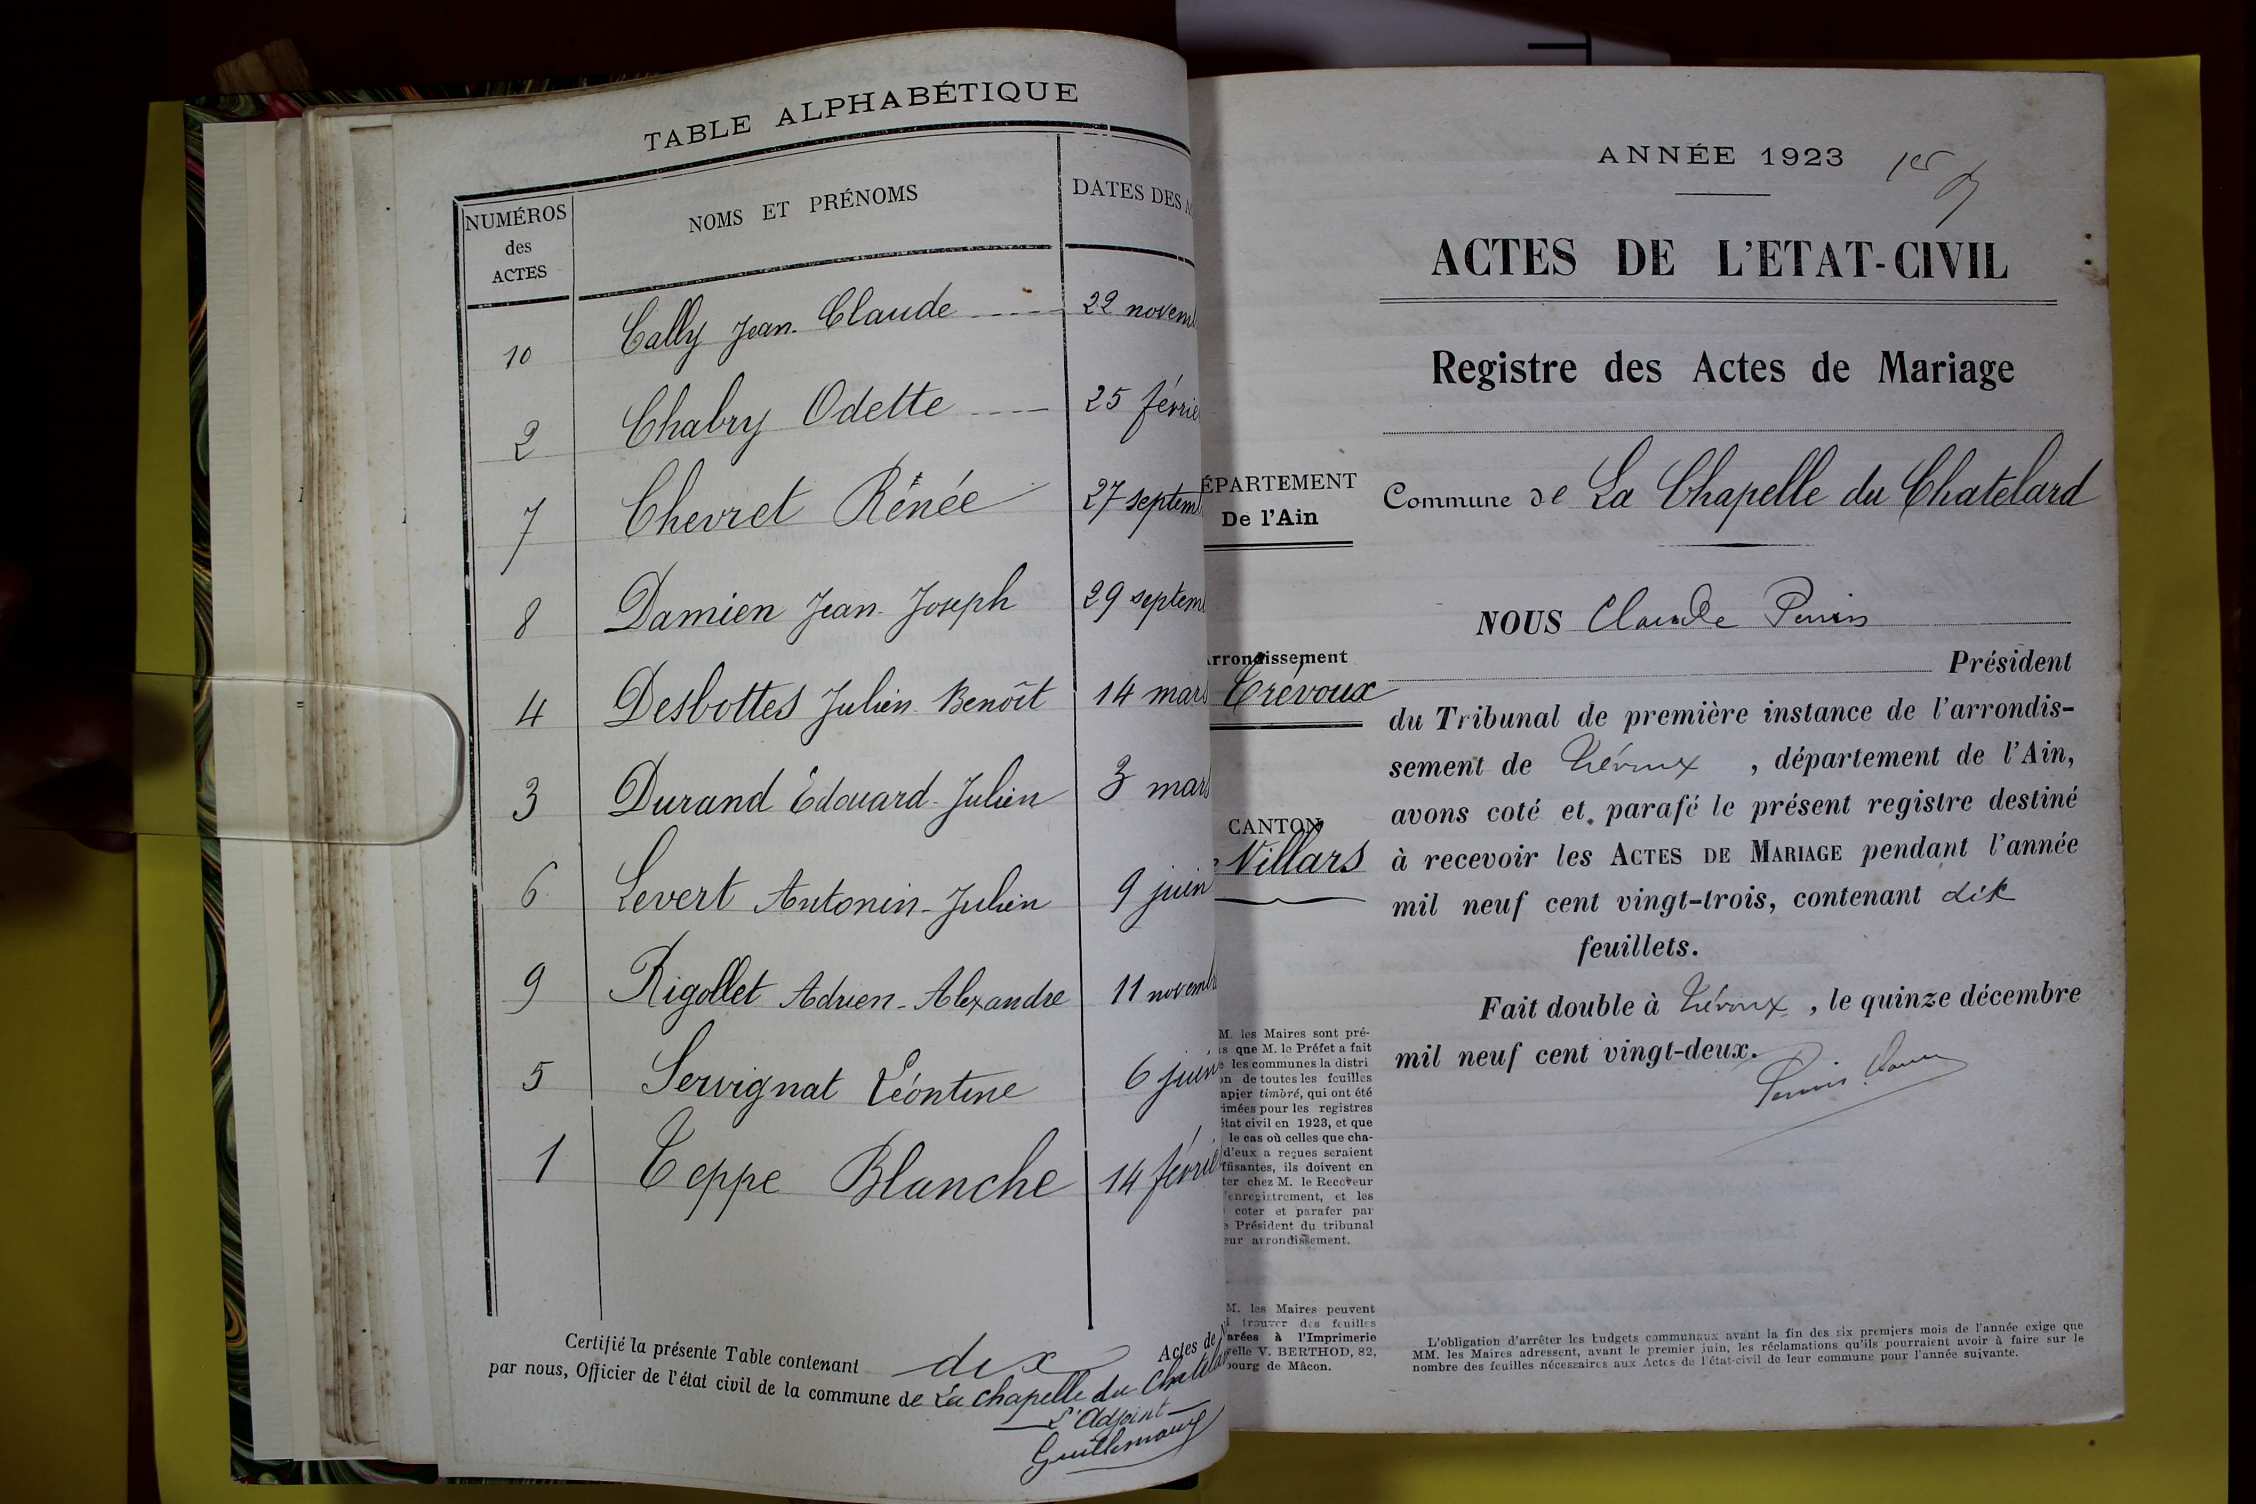 TABLE ALPHABÉTIQUE
NUMÉROS des ACTES NOMS ET PRÉNOMS DATES DES A
10 Cally Jean-Claude 22 novem
2 Chabry Odette 25 févrie
7 Chevret Rénée 27 septem
8 Damien Jean-Joseph 29 septem
4 Desbottes Julien Benoît 14 mars
3 Durand Edouard-Julien 3 mars
6 Levert Antonin-Julien 9 juin
9 Rigollet Adrien-Alexandre 11 novemb
5 Servignat Léontine 6 juin
1 Teppe Blanche 14 févrie
Certifié la présente Table contenant dix Actes de
par nous, Officier de l'état civil de la commune de La Chapelle du Chatelar
L'Adjoint
ANNÉE 1923
ACTES DE L'ETAT-CIVIL
Registre des Actes de Mariage
ÉPARTEMENT
De l'Ain
rrondissement
Trévoux
CANTON
Villars
M. les Maires sont pré-
s que M. le Préfet a fait
les communes la distri
on de toutes les feuilles
apier timbré, qui ont été
rimées pour les registres
état civil en 1923, et que
le cas où celles que cha-
d'eux a reçues seraient
ffisantes, ils doivent en
ter chez M. le Receveur
l'enregistrement, et les
coter et parafer par
Président du tribunal
eur arrondissement.
M. les Maires peuvent
trouver des feuilles
arées à l'Imprimerie
elle V. BERTHOD, 82,
bourg de Mâcon.
Commune de La Chapelle du Chatelard
NOUS Claude Perrin
Président
du Tribunal de première instance de l'arrondis-
sement de Trévoux, département de l'Ain,
avons coté et parafé le présent registre destiné
à recevoir les ACTES DE MARIAGE pendant l'année
mil neuf cent vingt-trois, contenant dix
feuillets.
Fait double à Trévoux, le quinze décembre
mil neuf cent vingt-deux.
L'obligation d'arrêter les budgets communaux avant la fin des six premiers mois de l'année exige que
MM. les Maires adressent, avant le premier juin, les réclamations qu'ils pourraient avoir à faire sur le
nombre des feuilles nécessaires aux Actes de l'état-civil de leur commune pour l'année suivante.